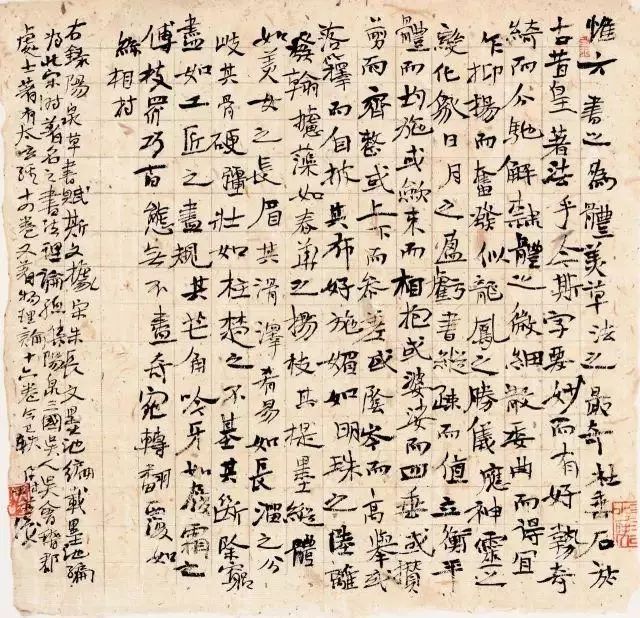 惟六書之為體美草法之最奇杜垂名於
古昔皇著法乎今斯字要妙而有好勢奇
綺而分馳解隸體之微細散委曲而得宜
乍抑揚而奮發似龍鳳之勝儀應神靈之
變化象日月之盈虧書縱竦而值立衡平
體而均施或斂束而相抱或婆娑而四垂或攢
剪而齊整或上下而參差或陰岑而高舉或
落籜而自披其布好施媚如明珠之陸離
發翰攄藻如春華之揚枝其提墨縱體
如美女之長眉其滑澤肴易如長溜之分
岐其骨硬彊壯如柱楚之不基其斷除窮
盡如工匠之盡規其芒角吟牙如嚴霜之
傅枝眾巧百態無不盡奇宛轉翻覆如
絲相持
右錄陽泉草書賦斯文據宋朱長文墨池編載墨池編
為此宋時著名之書法理論陽泉三國吳人吳會稽郡
處士著有太玄經十四卷又著物理論十六卷今已軼